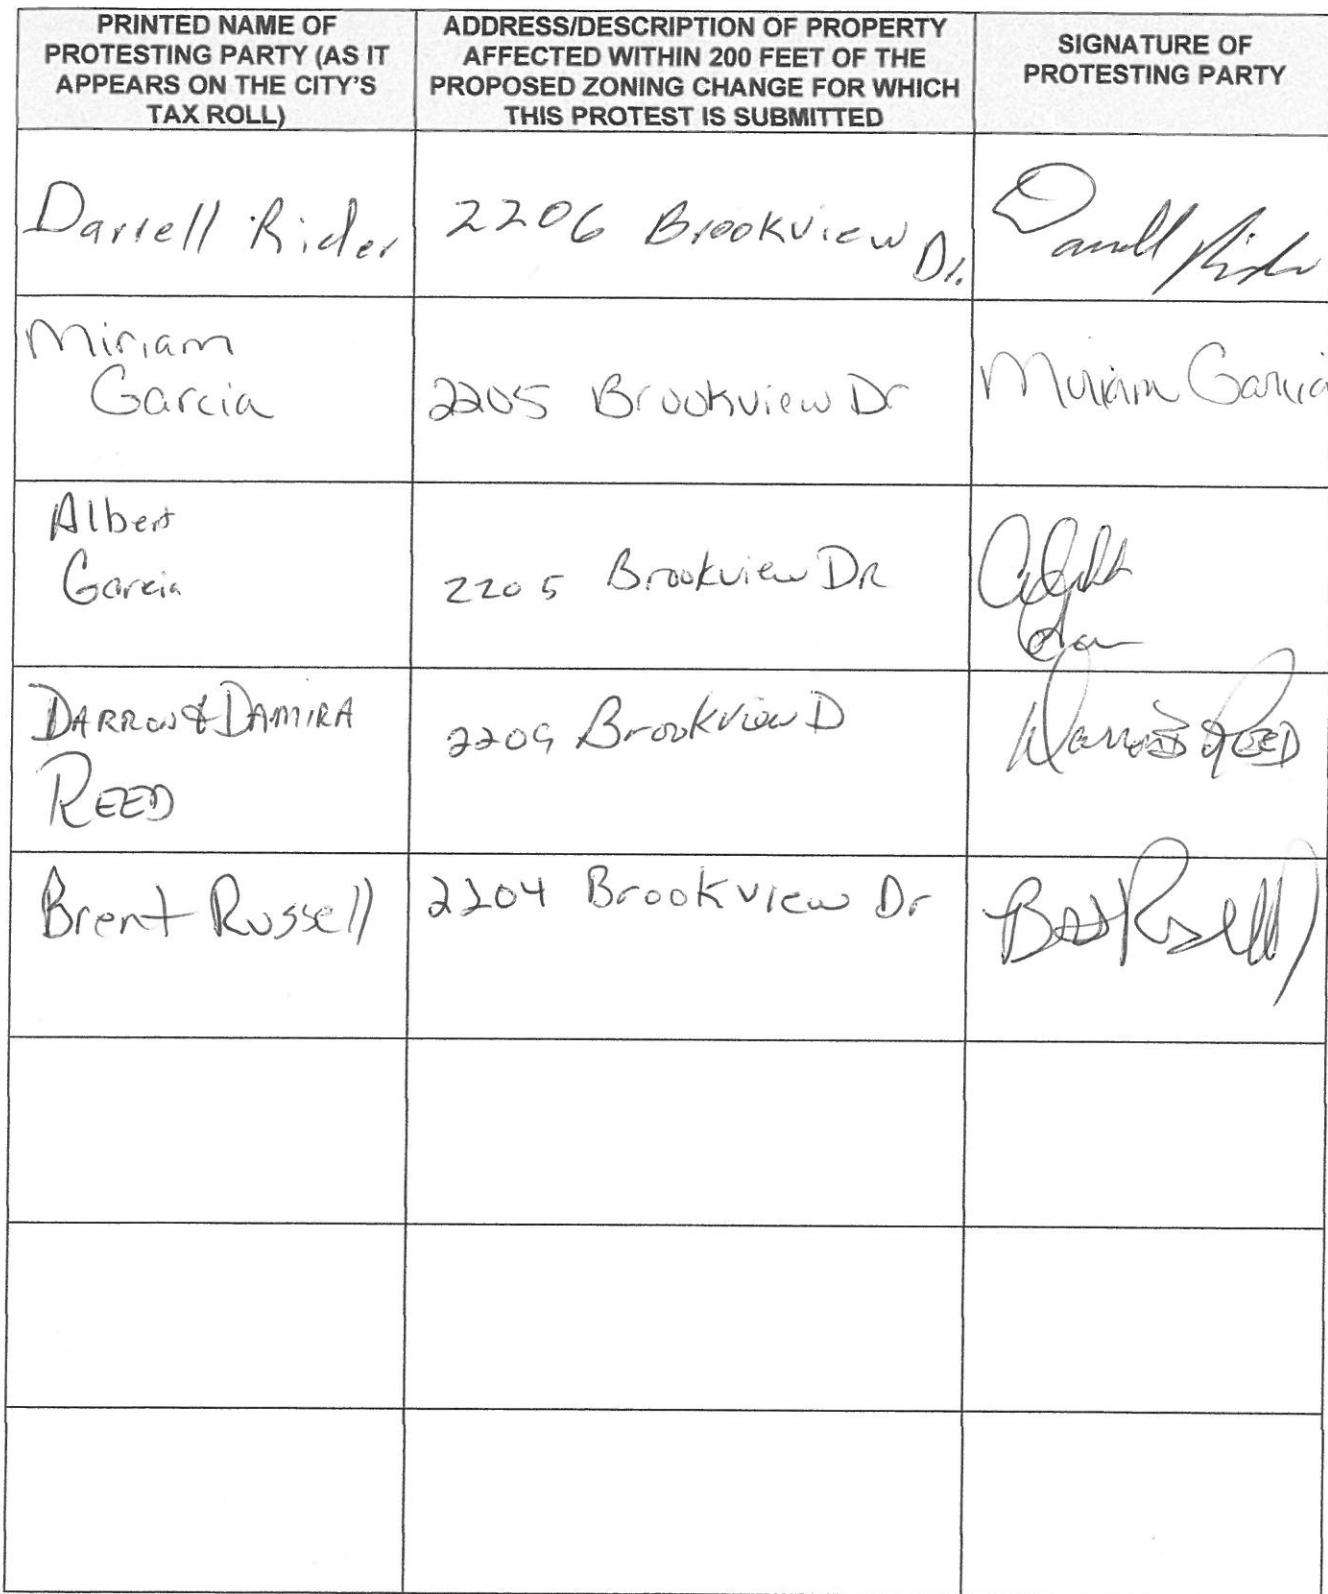 PRINTED NAME OF
PROTESTING PARTY (AS IT
APPEARS ON THE CITY'S
TAX ROLL)
ADDRESS/DESCRIPTION OF PROPERTY
AFFECTED WITHIN 200 FEET OF THE
PROPOSED ZONING CHANGE FOR WHICH
THIS PROTEST IS SUBMITTED
SIGNATURE OF
PROTESTING PARTY
Darrell Rider
2206 Brookview Dr.
Darrell Rider
Miriam
Garcia
2205 Brookview Dr
Miriam Garcia
Albert
Garcia
2205 Brookview DR
DARRON & DAMIRA
REED
2209 Brookview D
REED
Brent Russell
2204 Brookview Dr
Brent Russell